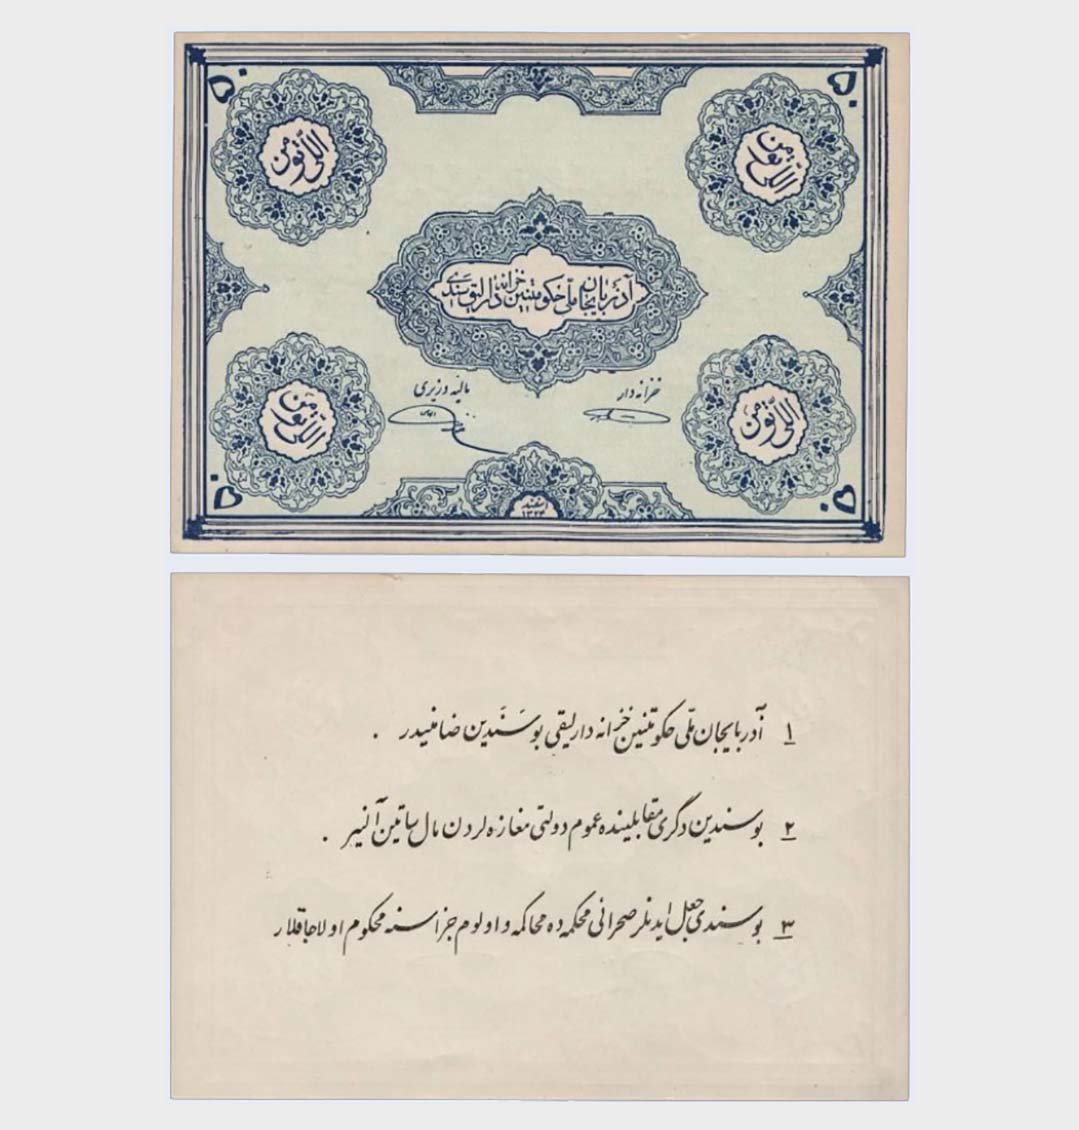 ۵۰
۵۰
اللی تومن
اللی تومن
آذربایجان ملی حکومتینین خزانه دارلیق سندی
مالیه وزیری
خزانه دار
اللی تومن
اللی تومن
اسفند
۱۳۲۴
۵۰
۵۰
۱ آذربایجان ملّی حکومتنین خزانه دارلیقی بو سَنَدین ضامنیدر .
۲ بو سندین دگری مقابلینده عموم دولتی مغازه لردن مال ساتین آلنیر .
۳ بو سندی جعل ایدنلر صحرائی محکمه ده محاکمه و اولوم جزاسنه محکوم اولاجاقلار